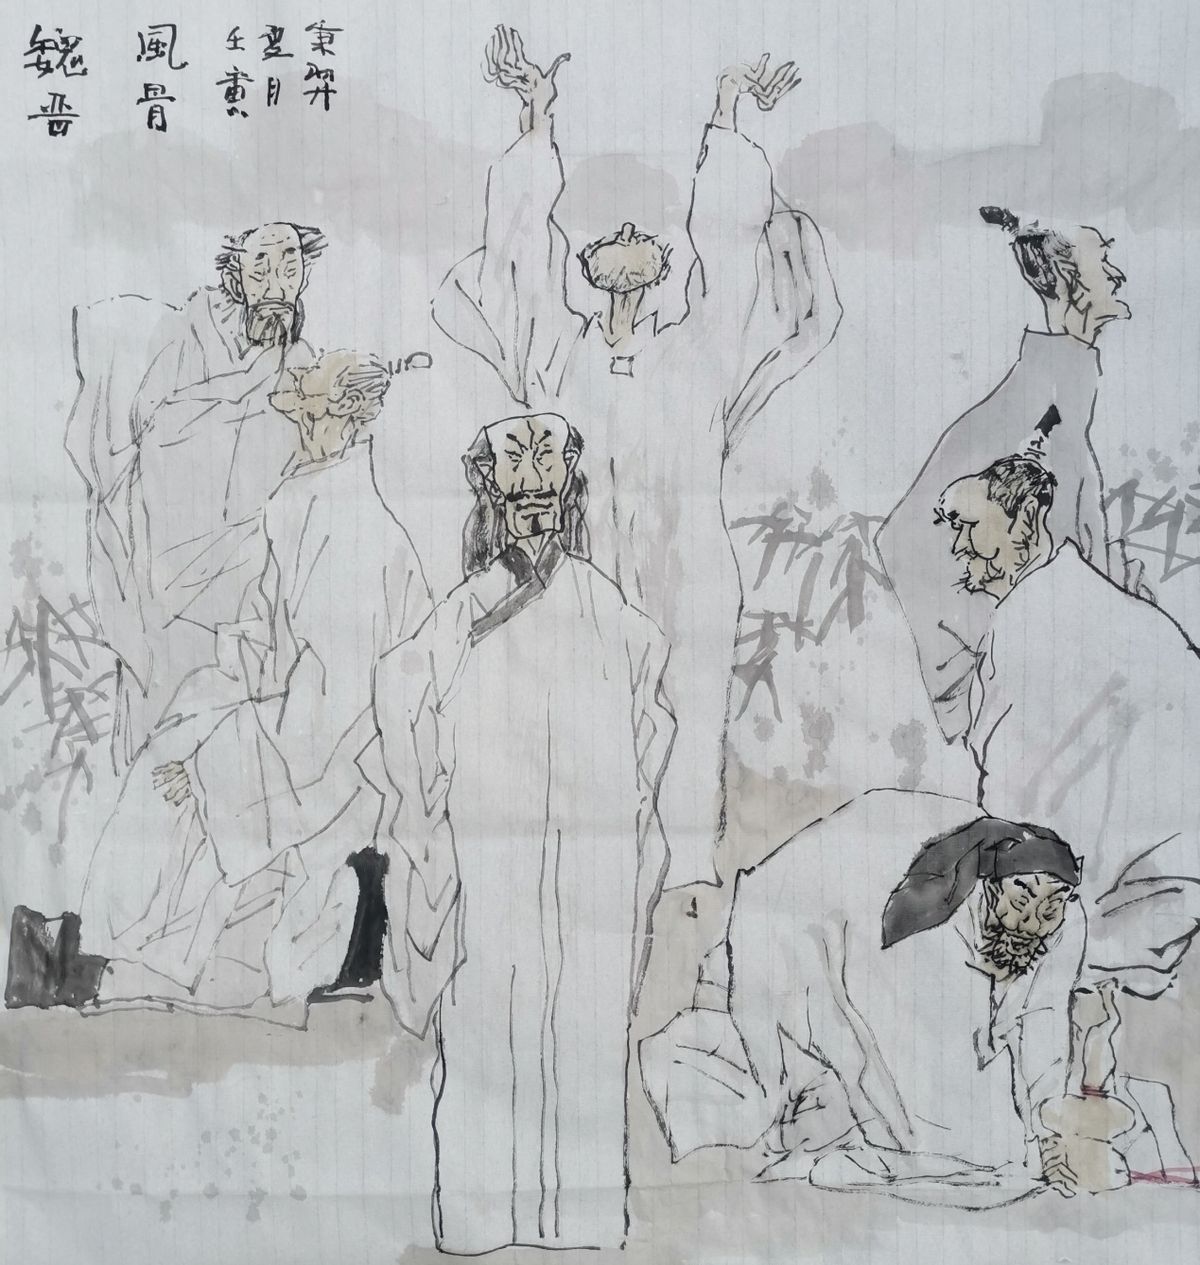 魏晋
風骨
壬寅
夏月
秉羿